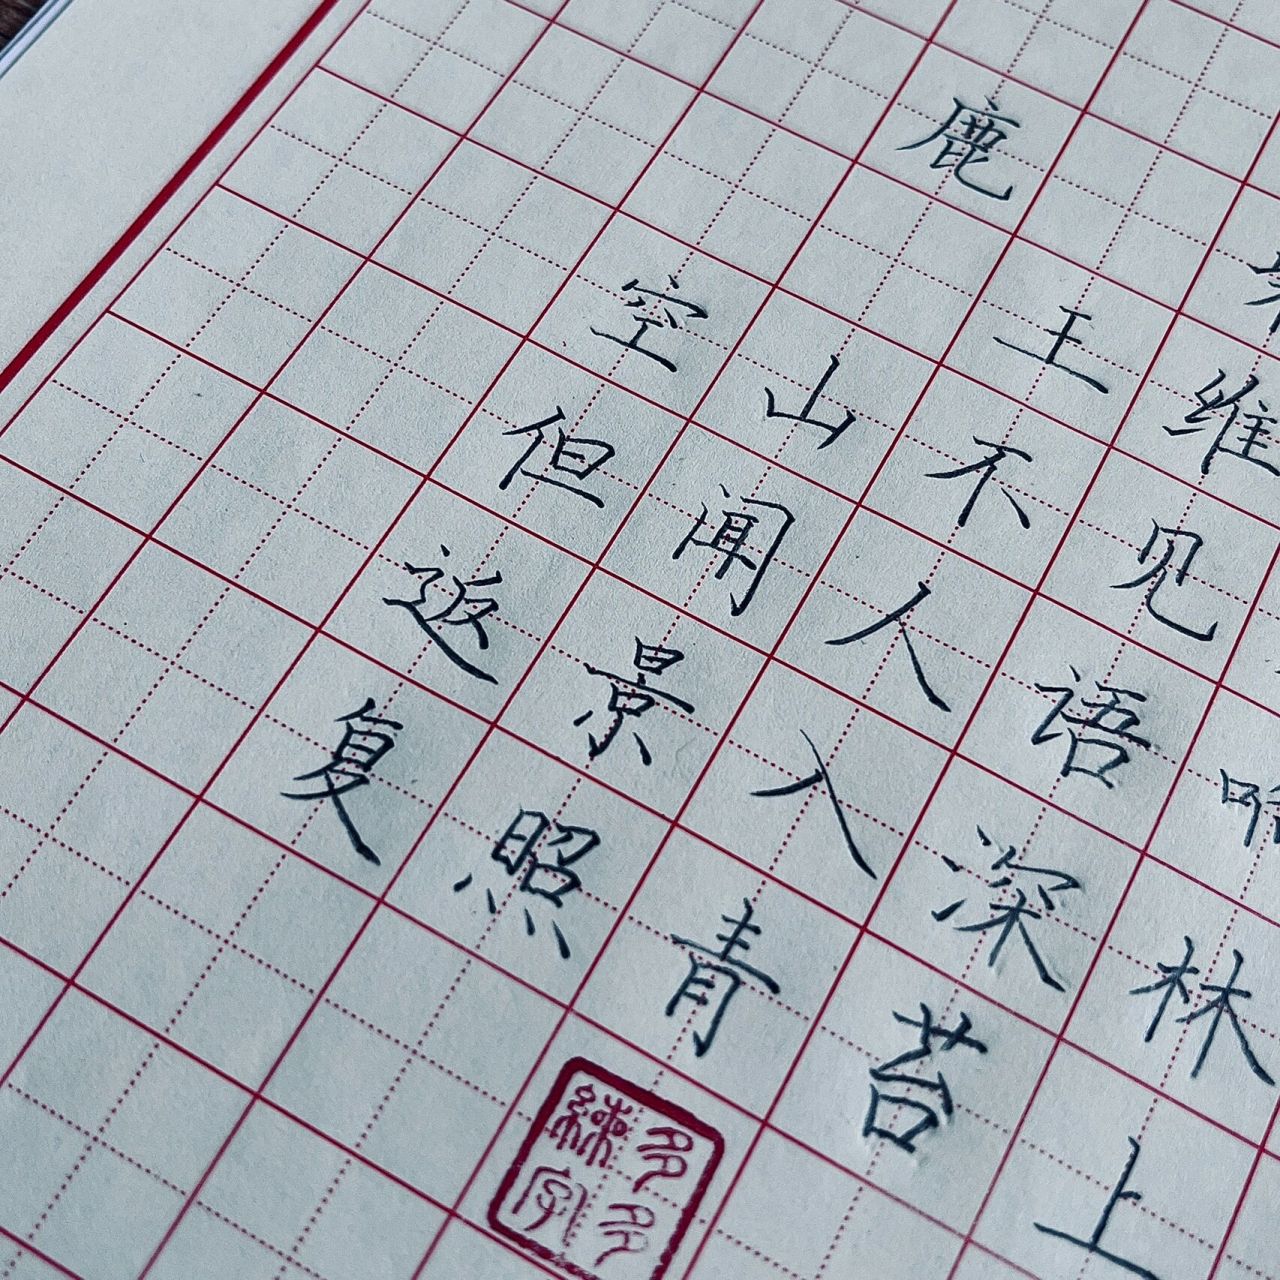 鹿
王维
空山不见
但闻人语响
返景入深林
复照青苔上
多多
練字